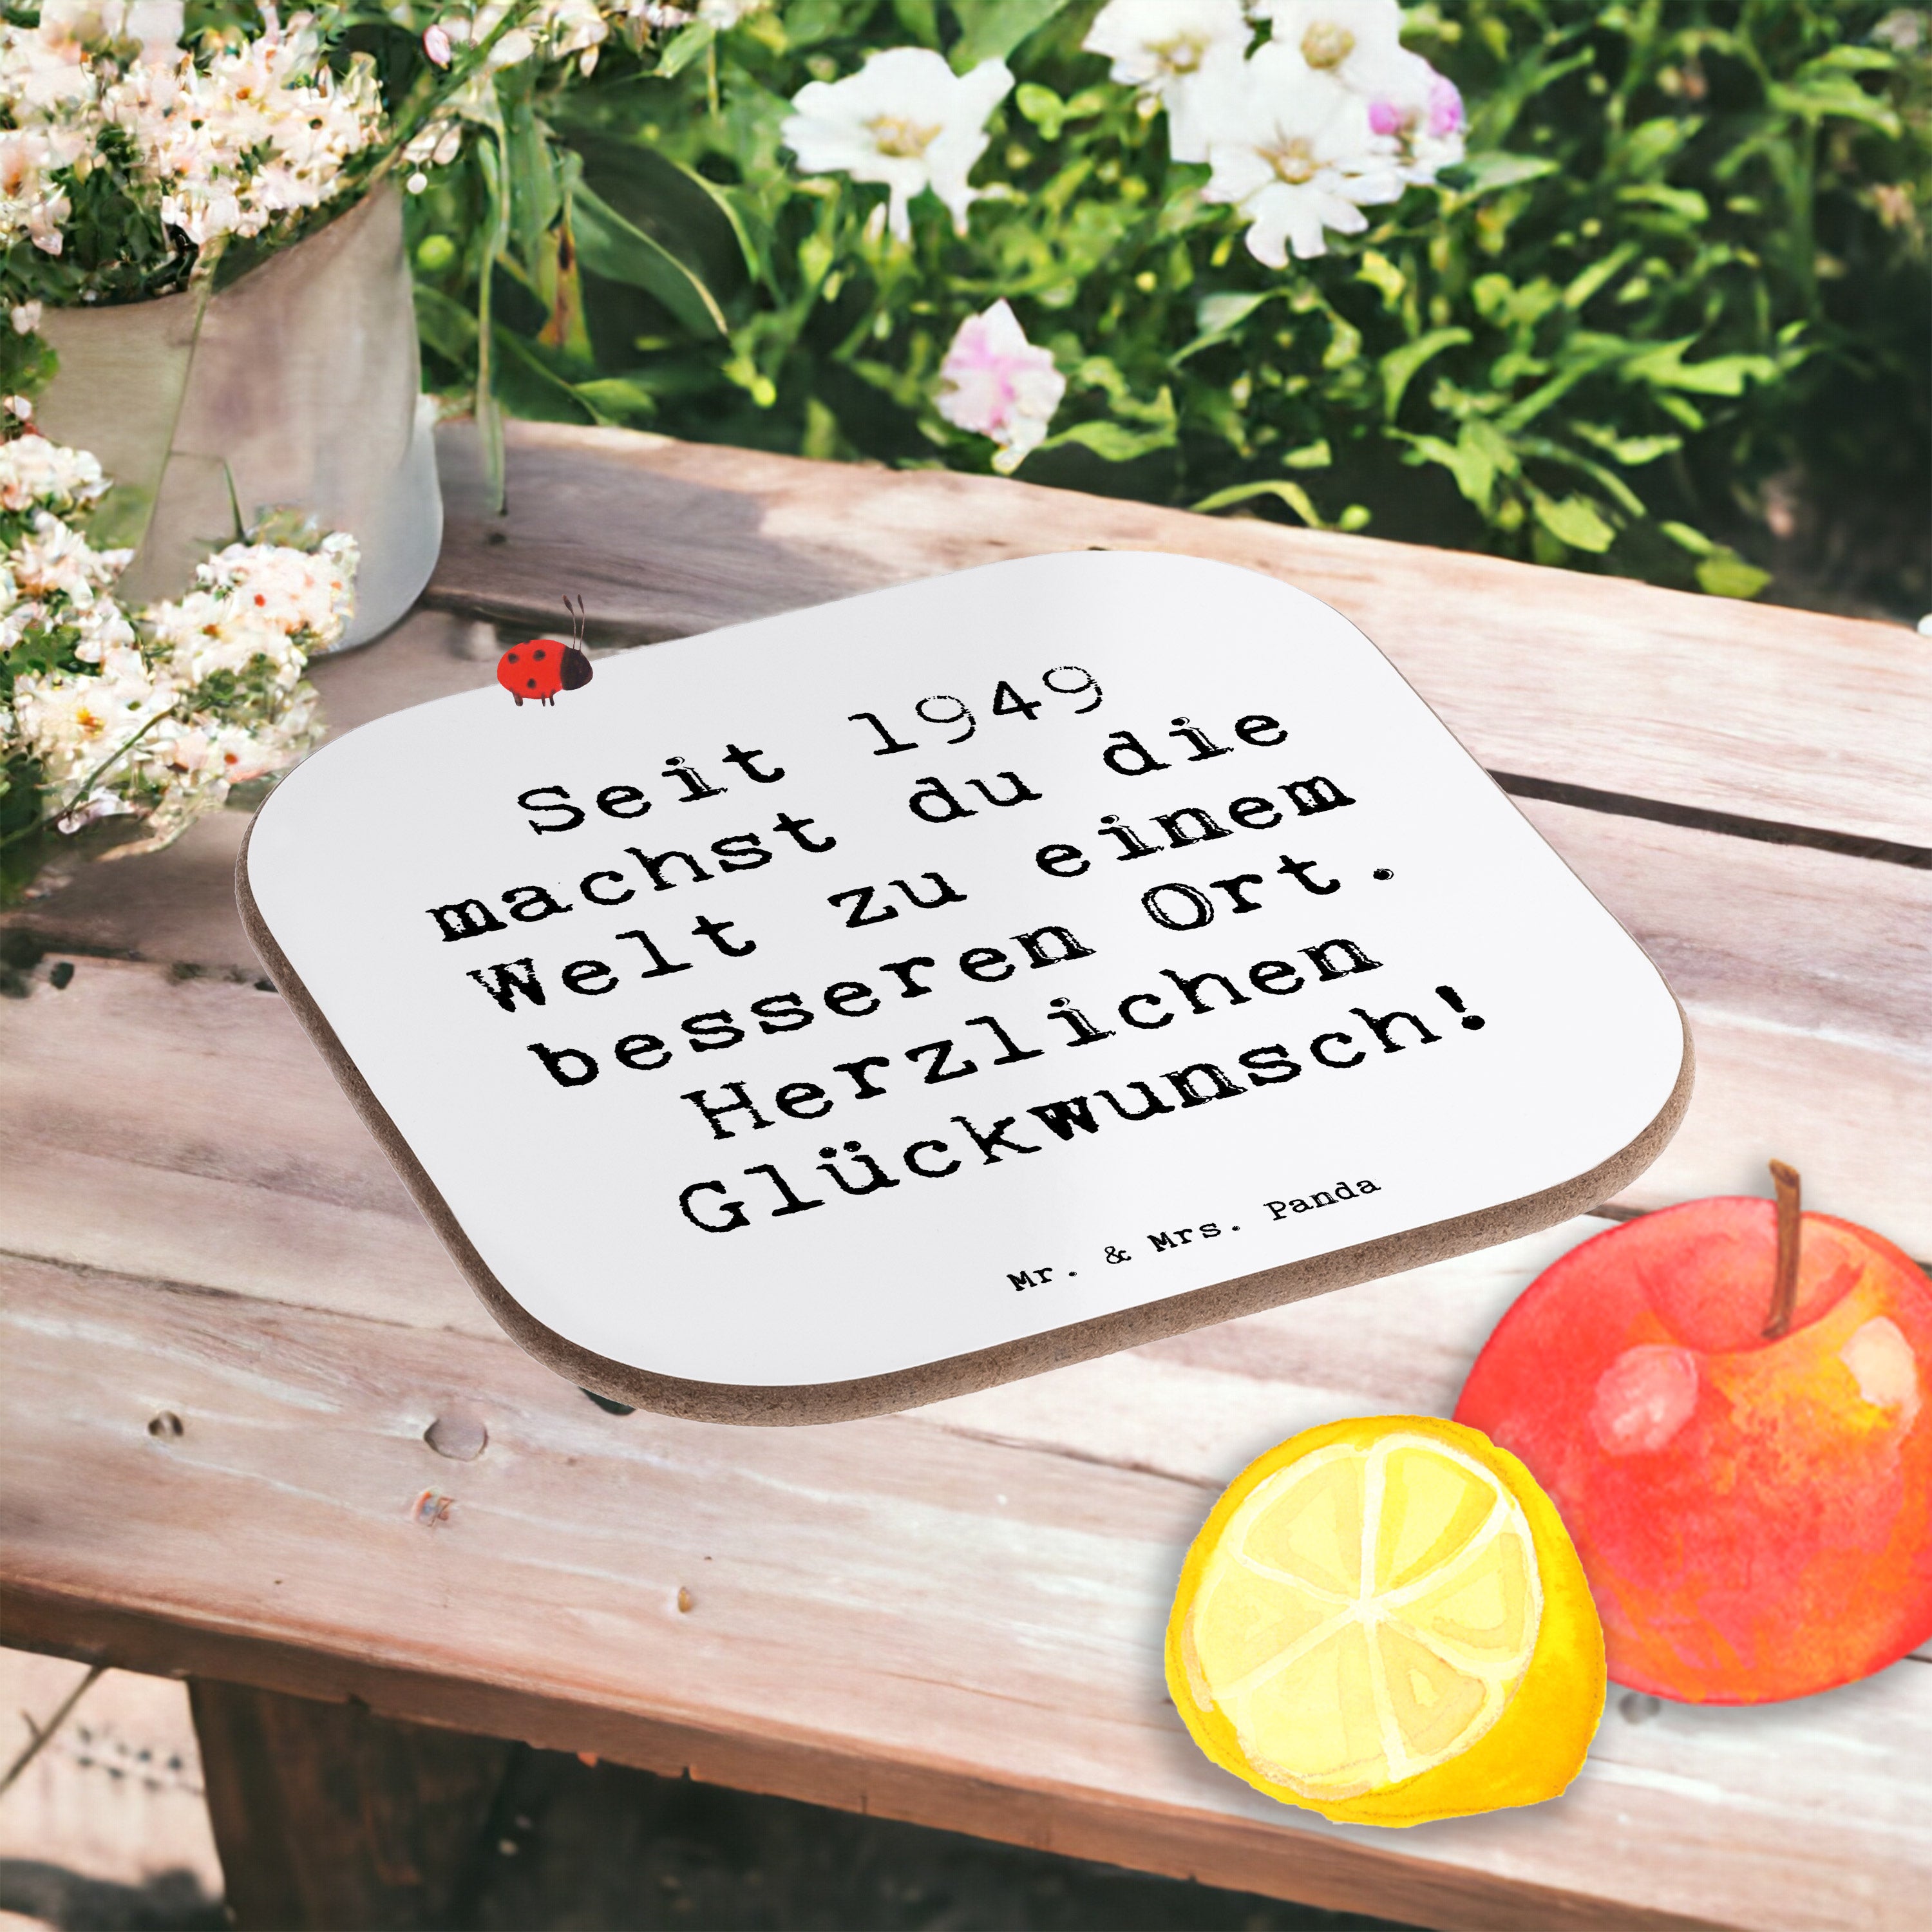 Seit 1949
machst du die
Welt zu einem
besseren Ort.
Herzlichen
Glückwunsch!
Mr. & Mrs. Panda